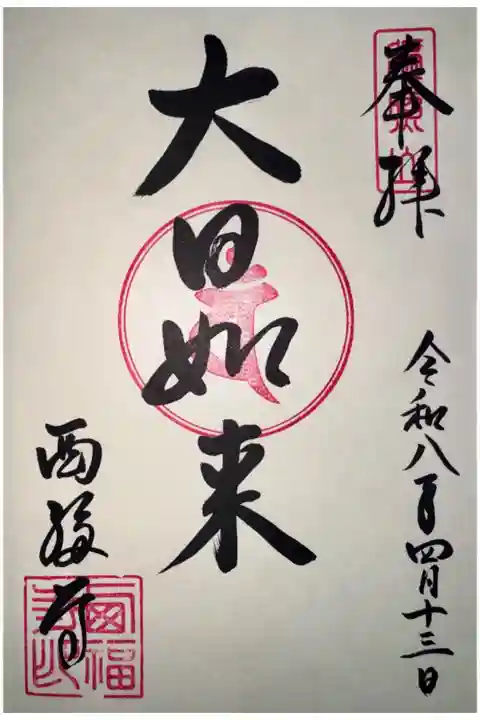 奉拝
令和八年四月十三日
大日如来
西福寺
西福寺印